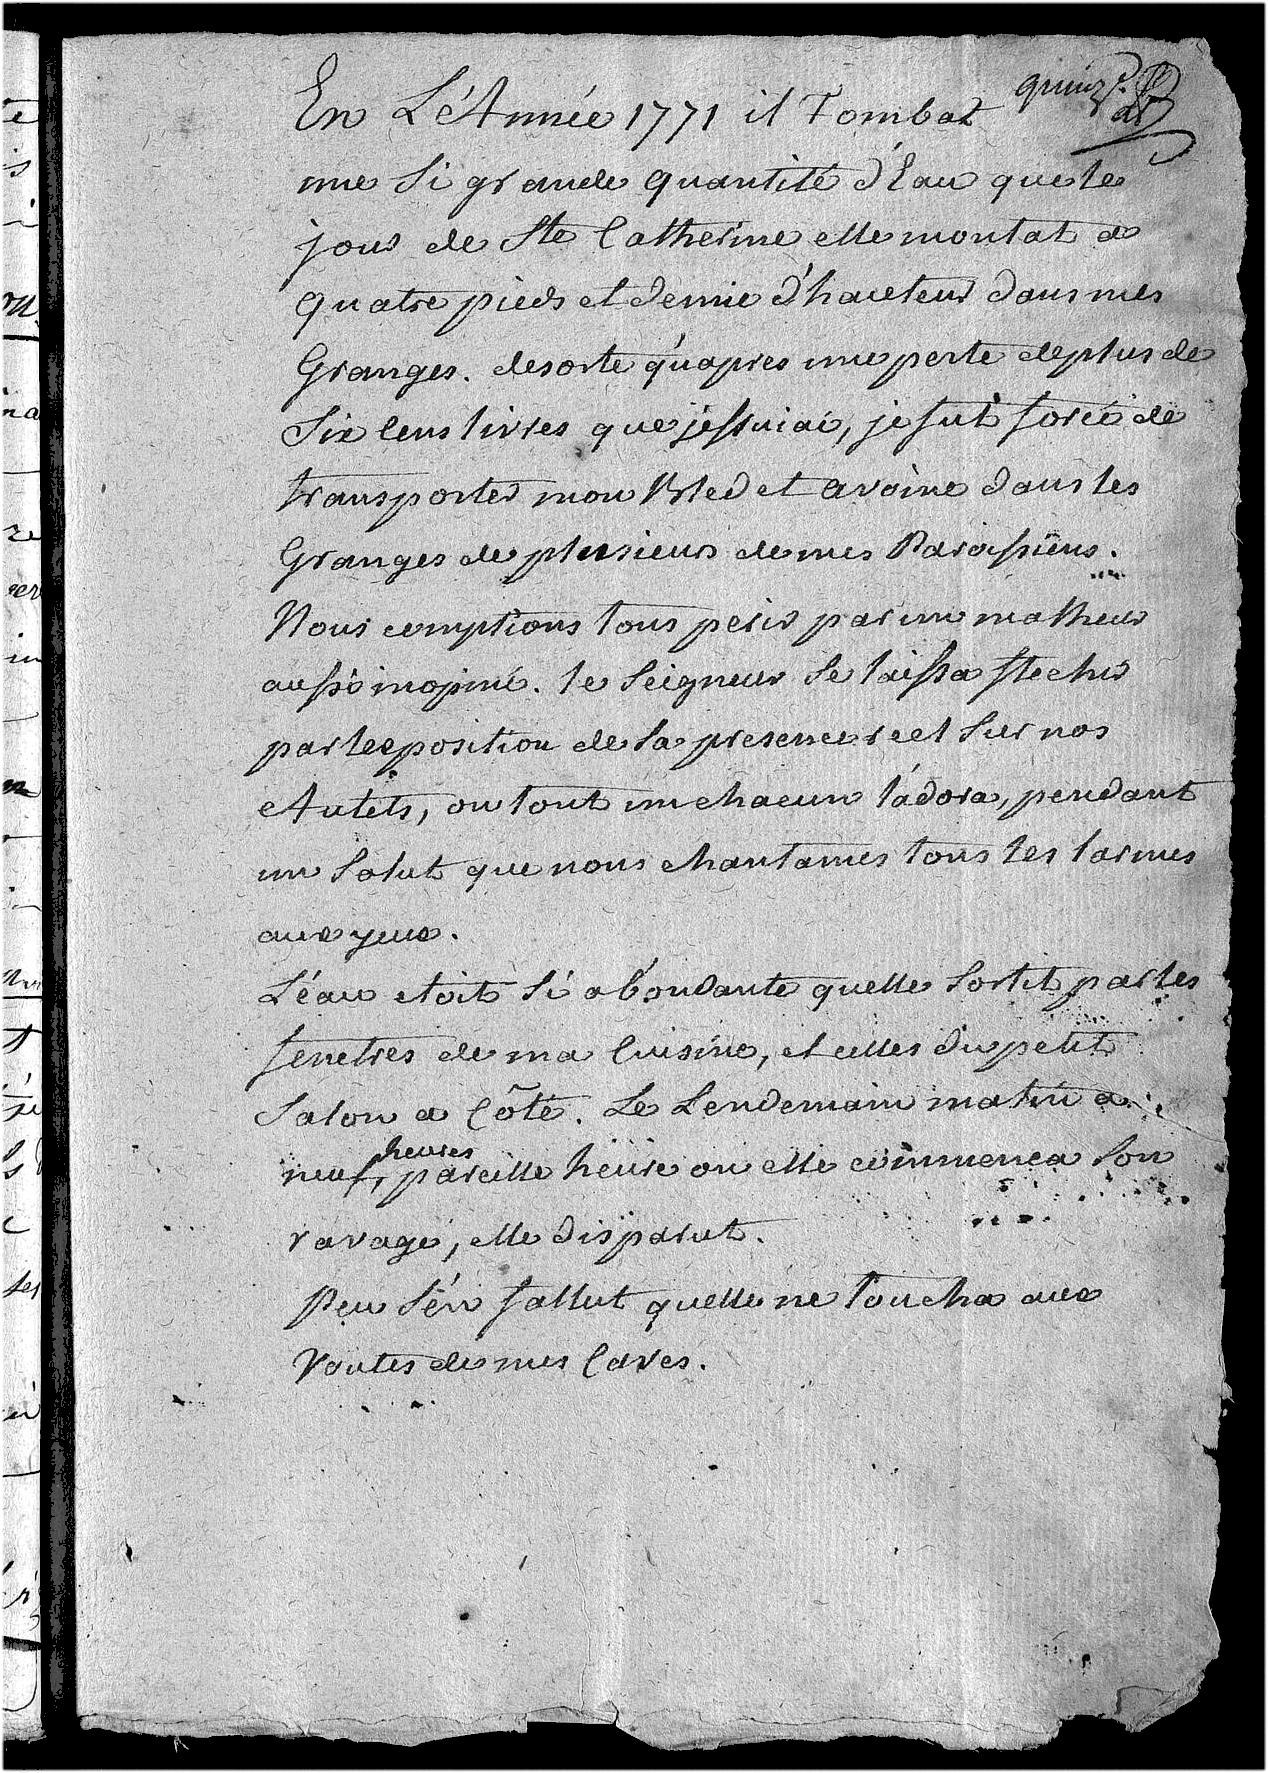 quinze
En L'éAnnée 1771 il Tombat
une Si grande quantité d'Eau que le
jour de Ste Catherine elle montat a
quatre pieds et demie d'hauteur dans mes
Granges. desorte qu'apres une perte de plus de
Six Cens livres que j'essuiai, je fut forcé de
transporter mon Bled et avoine dans les
Granges de plusieurs de mes Paroissiens.
Nous comptions tous perir par un malheur
aussi inopiné. le Seigneur Se laissa flechir
par l'exposition de Sa presence reel Sur nos
Autels, ou tout un chacun l'adora, pendant
un Salut que nous chantames tous les larmes
aux yeux.
L'éau etoit Si abondante quelle Sortit par les
fenetres de ma Cuisine, et celles du petit
Salon a Côté. Le Lendemain matin a
neuf heures, pareille heure ou elle commenca Son
ravage, elle disparut.
Peu S'en fallut quelle ne Toucha aux
Voutes de mes Caves.